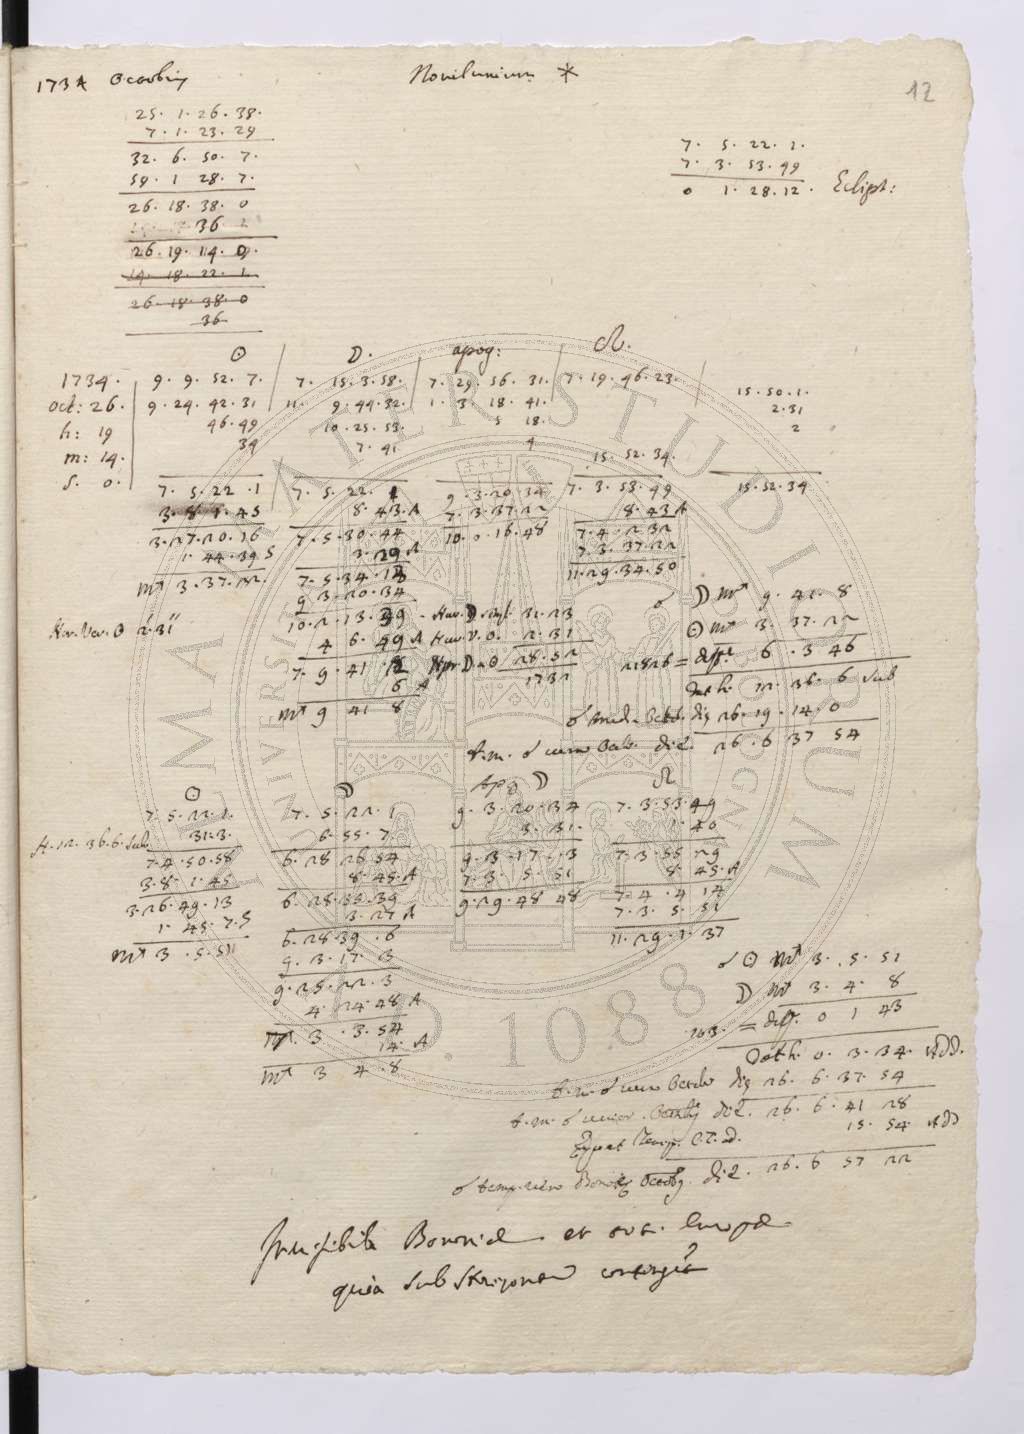 1734 Octobris Novilunium *
12
25. 1. 26. 38.
7. 1. 23. 29
32. 6. 50. 7.
59. 1 28. 7.
26. 18. 38. 0
36
26. 19. 14. 0.
14. 18. 22. 1.
26. 18. 38. 0
36
7. 5. 22. 1.
7. 3. 53. 49
0 1. 28. 12. Eclipt:
☉ ☽. apog: ☊.
1734. 9. 9. 52. 7. 7. 15. 3. 58. 7. 29. 56. 31. 7. 19. 46. 23. 15. 50. 1.
oct: 26. 9. 24. 42. 31 11. 9. 44. 32. 1. 3. 18. 41. 2. 31
h: 19 46. 49 10. 25. 53. 5 18. 2
m: 14. 34 7. 41 4 15. 52. 34.
s. 0.
7. 5. 22. 1 7. 5. 22. 1 9. 3. 20. 34 7. 3. 53. 49 15. 52. 34
3. 8. 1. 45 8. 43. A 7. 3. 37. 22 8. 43 A
3. 27. 20. 16 7. 5. 30. 44 10. 0. 16. 48 7. 4. 2 32
1. 44. 39 S 3. 29 A 7. 3. 37. 22
♏ 3. 37. 22. 7. 5. 34. 13 11. 29. 34. 50
9 3. 20. 34
Hor. Ver. ☉ 2. 31
10. 2. 13. 39 - Hor. ☽ simpl. 31. 23
4 6. 49 A Hor. V. ☉. 2. 31
7. 9. 41 12 Hor ☽ a ☉ 28. 52
6 A 1732
♏ 9 41 8
☌ ☽ ♏ 9. 41. 8
☉ ♏ 3. 37. 22
21826 = diff. 6. 3 46
Dat h. 12. 36. 6 sub
☌ med. Octob. die 26. 19. 14. 0
t. m. ☌ veræ Octob. die. 26. 6 37 54
☉ ☽ Apog ☽ ☊
7. 5. 22. 1. 7. 5. 22. 1 9. 3. 20. 34 7. 3. 53. 49
H. 12. 36. 6. sub. 31. 3. 6. 55. 7. 3. 31. 1. 40
7. 4. 50. 58 6. 28 26 54 9. 3. 17. 3 7. 3. 55 29
3. 8. 1. 45 8. 45. A 7. 3. 5. 51 8. 45. A
3. 26. 49. 13 6. 28. 35. 39 9. 29. 48 48 7. 4. 4 14
1. 45. 7. S 3. 27 A 7. 3. 5. 51
♏ 3. 5. 51 6. 28 39. 6 11. 29. 1. 37
9. 3. 17. 3
9. 25. 22. 3
4. 24. 48 A
♏. 3. 3. 54
14. A
♏ 3 4. 8
☌ ☉ ♏ 3. 5. 51
☽ ♏ 3. 4. 8
103. = diff. 0 1 43
Dat h. 0. 3. 34. ADD.
t. m. ☌ veræ Octob. die 26. 6. 37. 54
t. m. ☌ Octob. die. 26. 6. 41 28
Æquat Temp. ad. 15. 54. ADD
☌ temp. vero Bonon. Octob. die. 26. 6 57 22
Invisibilis Bononiæ et toti Europæ
quia sub Horizonte contingit